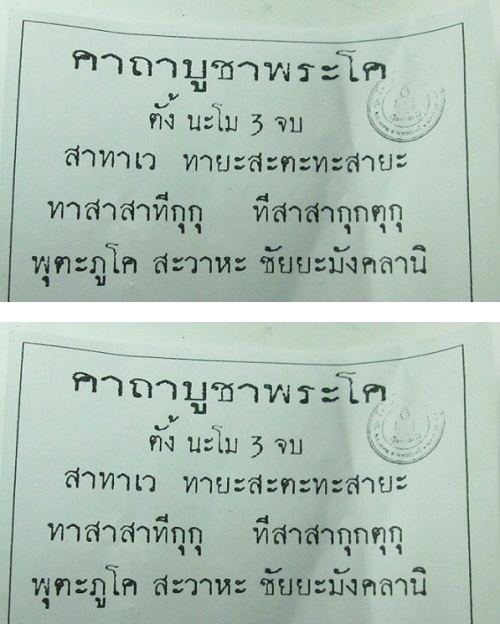 คาถาบูชาพระโค
ตั้ง นะโม 3 จบ
สาทาเว ทายะสะตะทะสายะ
ทาสาสาทีกุกุ ทีสาสากุกตุกุ
พุตะภูโค สะวาหะ ชัยยะมังคลานิ
คาถาบูชาพระโค
ตั้ง นะโม 3 จบ
สาทาเว ทายะสะตะทะสายะ
ทาสาสาทีกุกุ ทีสาสากุกตุกุ
พุตะภูโค สะวาหะ ชัยยะมังคลานิ